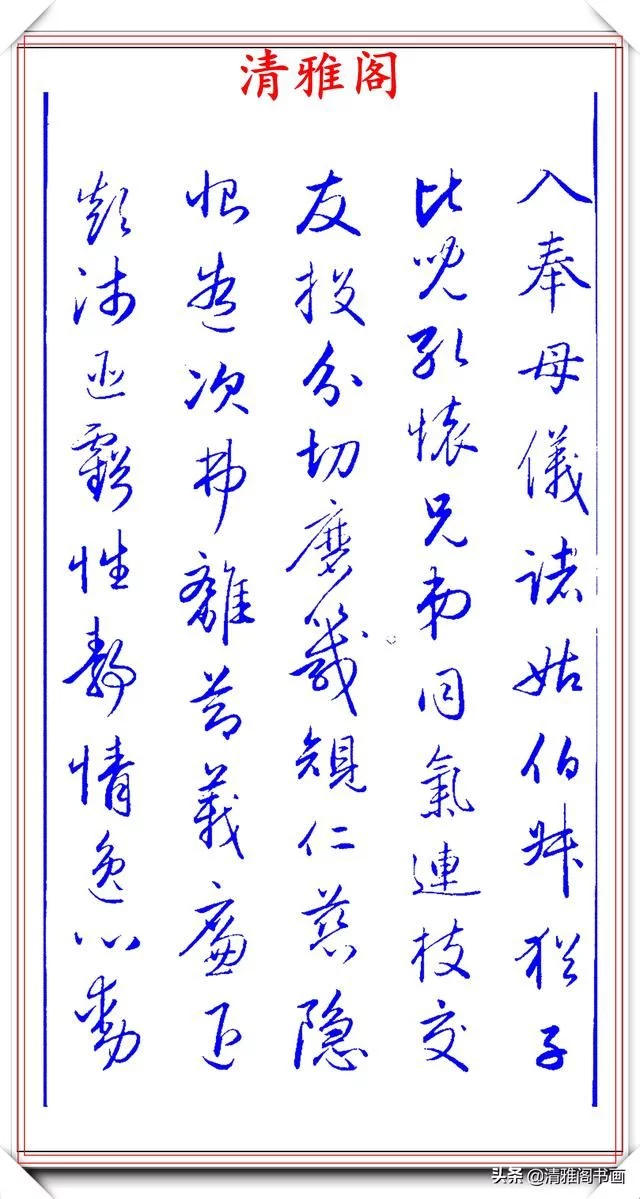 清雅阁
入奉母儀諸姑伯叔猶子
比兒孔懷兄弟同氣連枝交
友投分切磨箴規仁慈隐
惻造次弗離節義廉退
顛沛匪虧性静情逸心動
头条@清雅阁书画